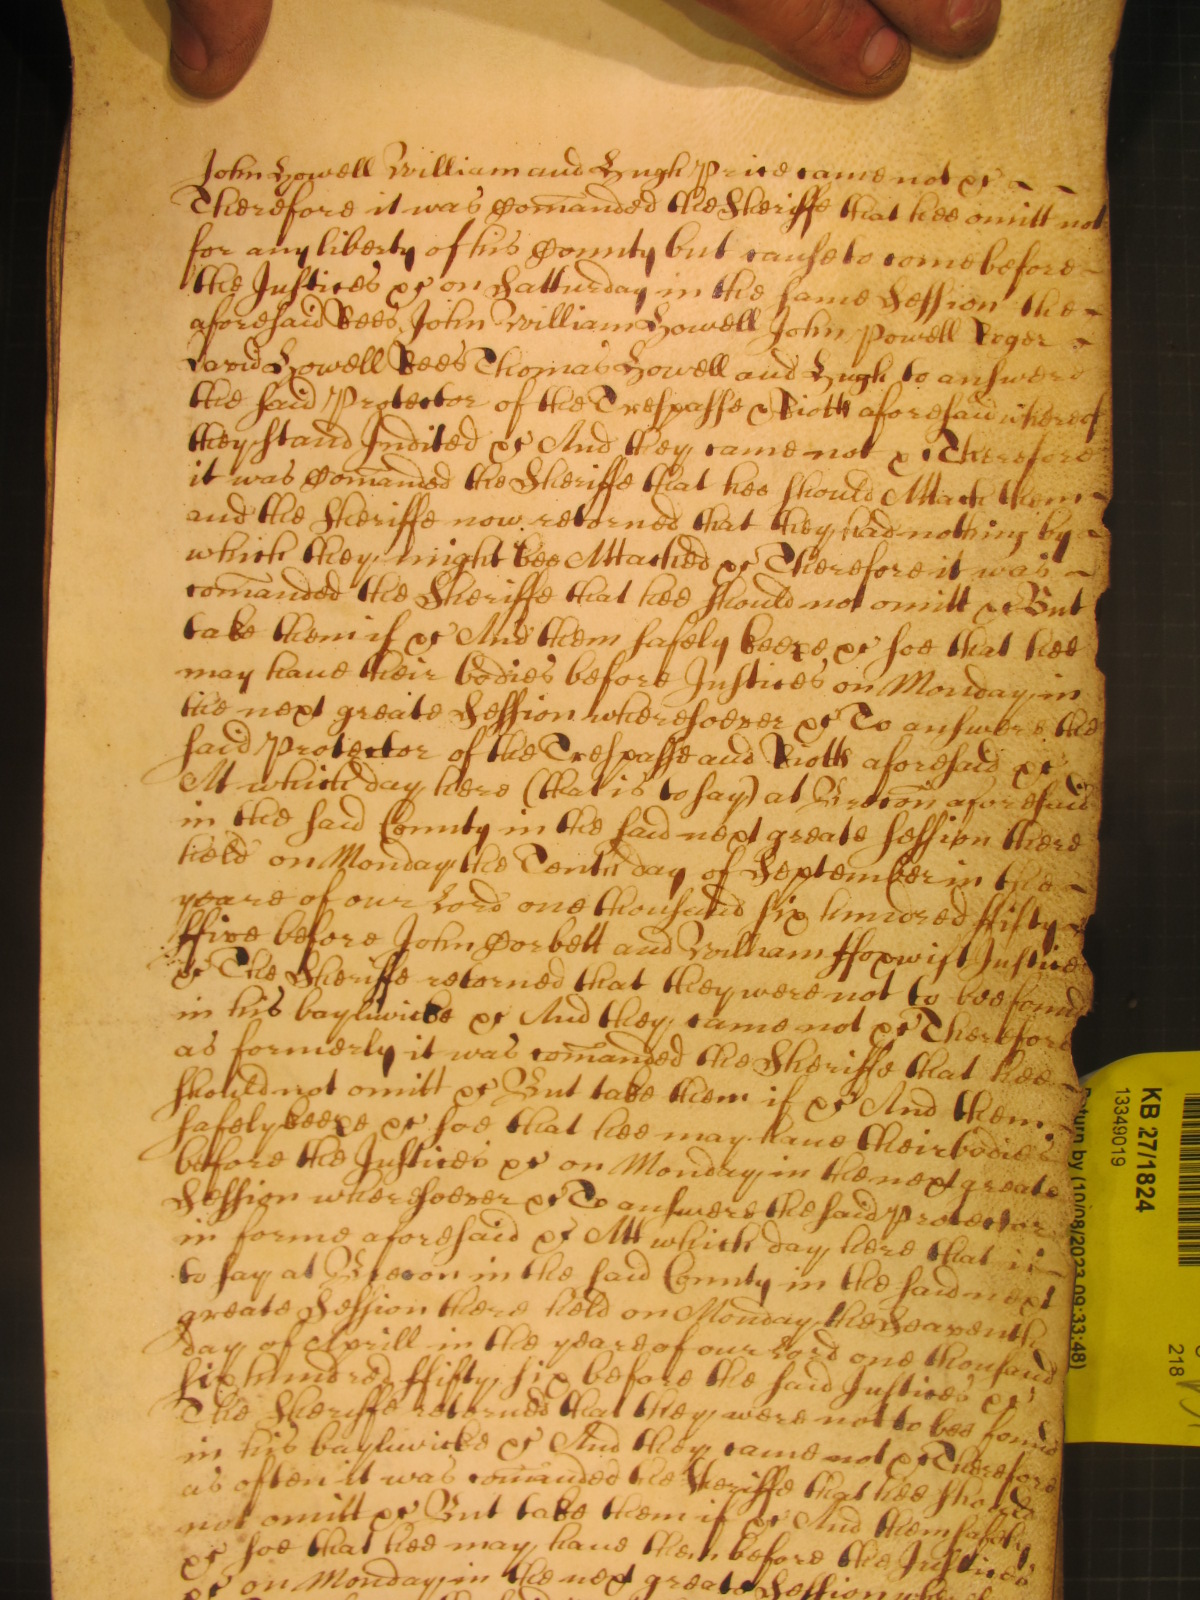 John Howell William and Hugh Price came not &c
Therefore it was Comanded the Sheriffe that hee omitt not
for any liberty of his County but cause to come before
the Justices &c on Satturday in the same Session the
aforesaid Rees John William Howell John Powell Roger
David Howell Rees Thomas Howell and Hugh to answere
the said Protector of the Trespasse & Riott aforesaid whereof
they stand Indited &c And they came not &c Therefore
it was Comanded the Sheriffe that hee should Attach them
and the Sheriffe now retorned that they had nothing by
which they might bee Attached &c Therefore it was
comanded the Sheriffe that hee should not omitt &c But
take them if &c And them safely keepe &c soe that hee
may haue their bodies before Justices on Monday in
the next greate Session wheresoever &c To answere the
said Protector of the Trespasse and Riott aforesaid &c
At which day here (that is to say) at Brecon aforesaid
in the said County in the said next greate session there
held on Monday the Tenth day of September in the
yeare of our Lord one thousand six hundred ffifty
ffive before John Corbett and William ffoxwist Justices
&c The Sheriffe retorned that they were not to bee found
in his bayliwicke &c And they came not &c Therefore
as formerly it was comanded the Sheriffe that hee
should not omitt &c But take them if &c And them
safely keepe &c soe that hee may haue their bodies
before the Justices &c on Monday in the next greate
Session wheresoever &c To answere the said Protector
in forme aforesaid &c Att which day here that is
to say at Brecon in the said County in the said next
greate Session there held on Monday the Seaventh
day of Aprill in the yeare of our Lord one thousand
six hundred ffifty six before the said Justices &c
The Sheriffe retorned that they were not to bee found
in his bayliwicke &c And they came not &c Therefore
as often it was comanded the Sheriffe that hee should
not omitt &c But take them if &c And them safely
&c soe that hee may haue them before the Justices
&c on Monday in the next greate Session
KB 27/1824
13349019
Return by (10/08/2023 09:33:48)
218